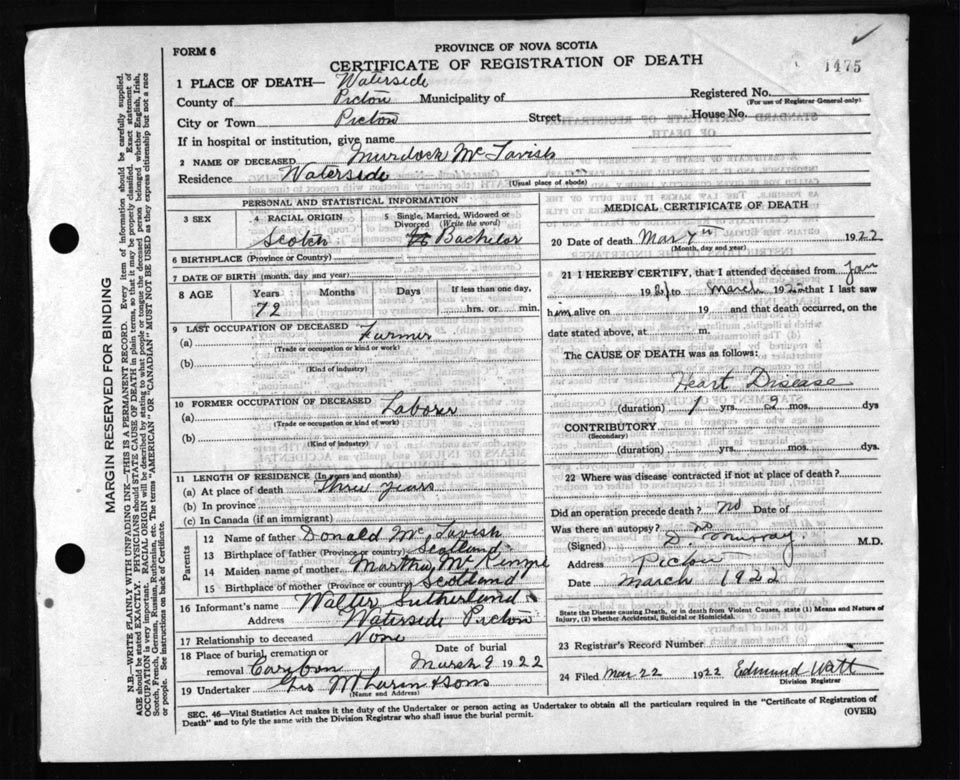 FORM 6
PROVINCE OF NOVA SCOTIA
CERTIFICATE OF REGISTRATION OF DEATH
1475
1 PLACE OF DEATH— Waterside
Registered No.
(For use of Registrar General only)
County of Pictou Municipality of
City or Town Pictou Street House No.
If in hospital or institution, give name
2 NAME OF DECEASED Murdock McTavish
Residence Waterside
(Usual place of abode)
PERSONAL AND STATISTICAL INFORMATION
3 SEX
4 RACIAL ORIGIN
Scotch
5 Single, Married, Widowed or Divorced (Write the word)
Bachelor
6 BIRTHPLACE (Province or Country)
7 DATE OF BIRTH (month, day and year)
8 AGE Years Months Days If less than one day,
72 hrs. or min.
9 LAST OCCUPATION OF DECEASED
(a) Farmer
(Trade or occupation or kind or work)
(b)
(Kind of industry)
10 FORMER OCCUPATION OF DECEASED
(a) Laborer
(Trade or occupation or kind of work)
(b)
(Kind of industry)
11 LENGTH OF RESIDENCE (In years and months)
(a) At place of death Three Years
(b) In province
(c) In Canada (if an immigrant)
Parents
12 Name of father Donald McTavish
13 Birthplace of father (Province or country) Scotland
14 Maiden name of mother Martha
15 Birthplace of mother (Province or country) Scotland
16 Informant's name Walter Sutherland
Address Waterside Pictou
17 Relationship to deceased None
18 Place of burial, cremation or removal Caribou
Date of burial
March 9 1922
19 Undertaker & Sons
(Name and Address)
MEDICAL CERTIFICATE OF DEATH
20 Date of death Mar 7th 1922
(Month, day and year)
21 I HEREBY CERTIFY, that I attended deceased from Jan
1921 to March 1922 that I last saw
him alive on 19 and that death occurred, on the
date stated above, at m.
The CAUSE OF DEATH was as follows:
Heart Disease
(duration) 1 yrs. 2 mos. dys
CONTRIBUTORY
(Secondary)
(duration) yrs. mos. dys.
22 Where was disease contracted if not at place of death?
Did an operation precede death? no Date of
Was there an autopsy? no
(Signed) D. Murray M.D.
Address Pictou
Date March 1922
State the Disease causing Death, or in death from Violent Causes, state (1) Means and Nature of
Injury, (2) whether Accidental, Suicidal or Homicidal.
23 Registrar's Record Number
24 Filed Mar 22 1922 Edmund Watt
Division Registrar
SEC. 46—Vital Statistics Act makes it the duty of the Undertaker or person acting as Undertaker to obtain all the particulars required in the "Certificate of Registration of
Death" and to fyle the same with the Division Registrar who shall issue the burial permit.
(OVER)
MARGIN RESERVED FOR BINDING
N.B.—WRITE PLAINLY WITH UNFADING INK—THIS IS A PERMANENT RECORD. Every item of information should be carefully supplied.
AGE should be stated EXACTLY. PHYSICIANS should STATE CAUSE OF DEATH in plain terms, so that it may be properly classified. Exact statement of
OCCUPATION is very important. RACIAL ORIGIN will be described by stating to what people or tongue the deceased person belonged whether English, Irish,
Scotch, French, German, Russian, Ruthenian, etc. The terms "AMERICAN" or "CANADIAN" MUST NOT BE USED as they express citizenship but not a race
or people. See instructions on back of Certificate.